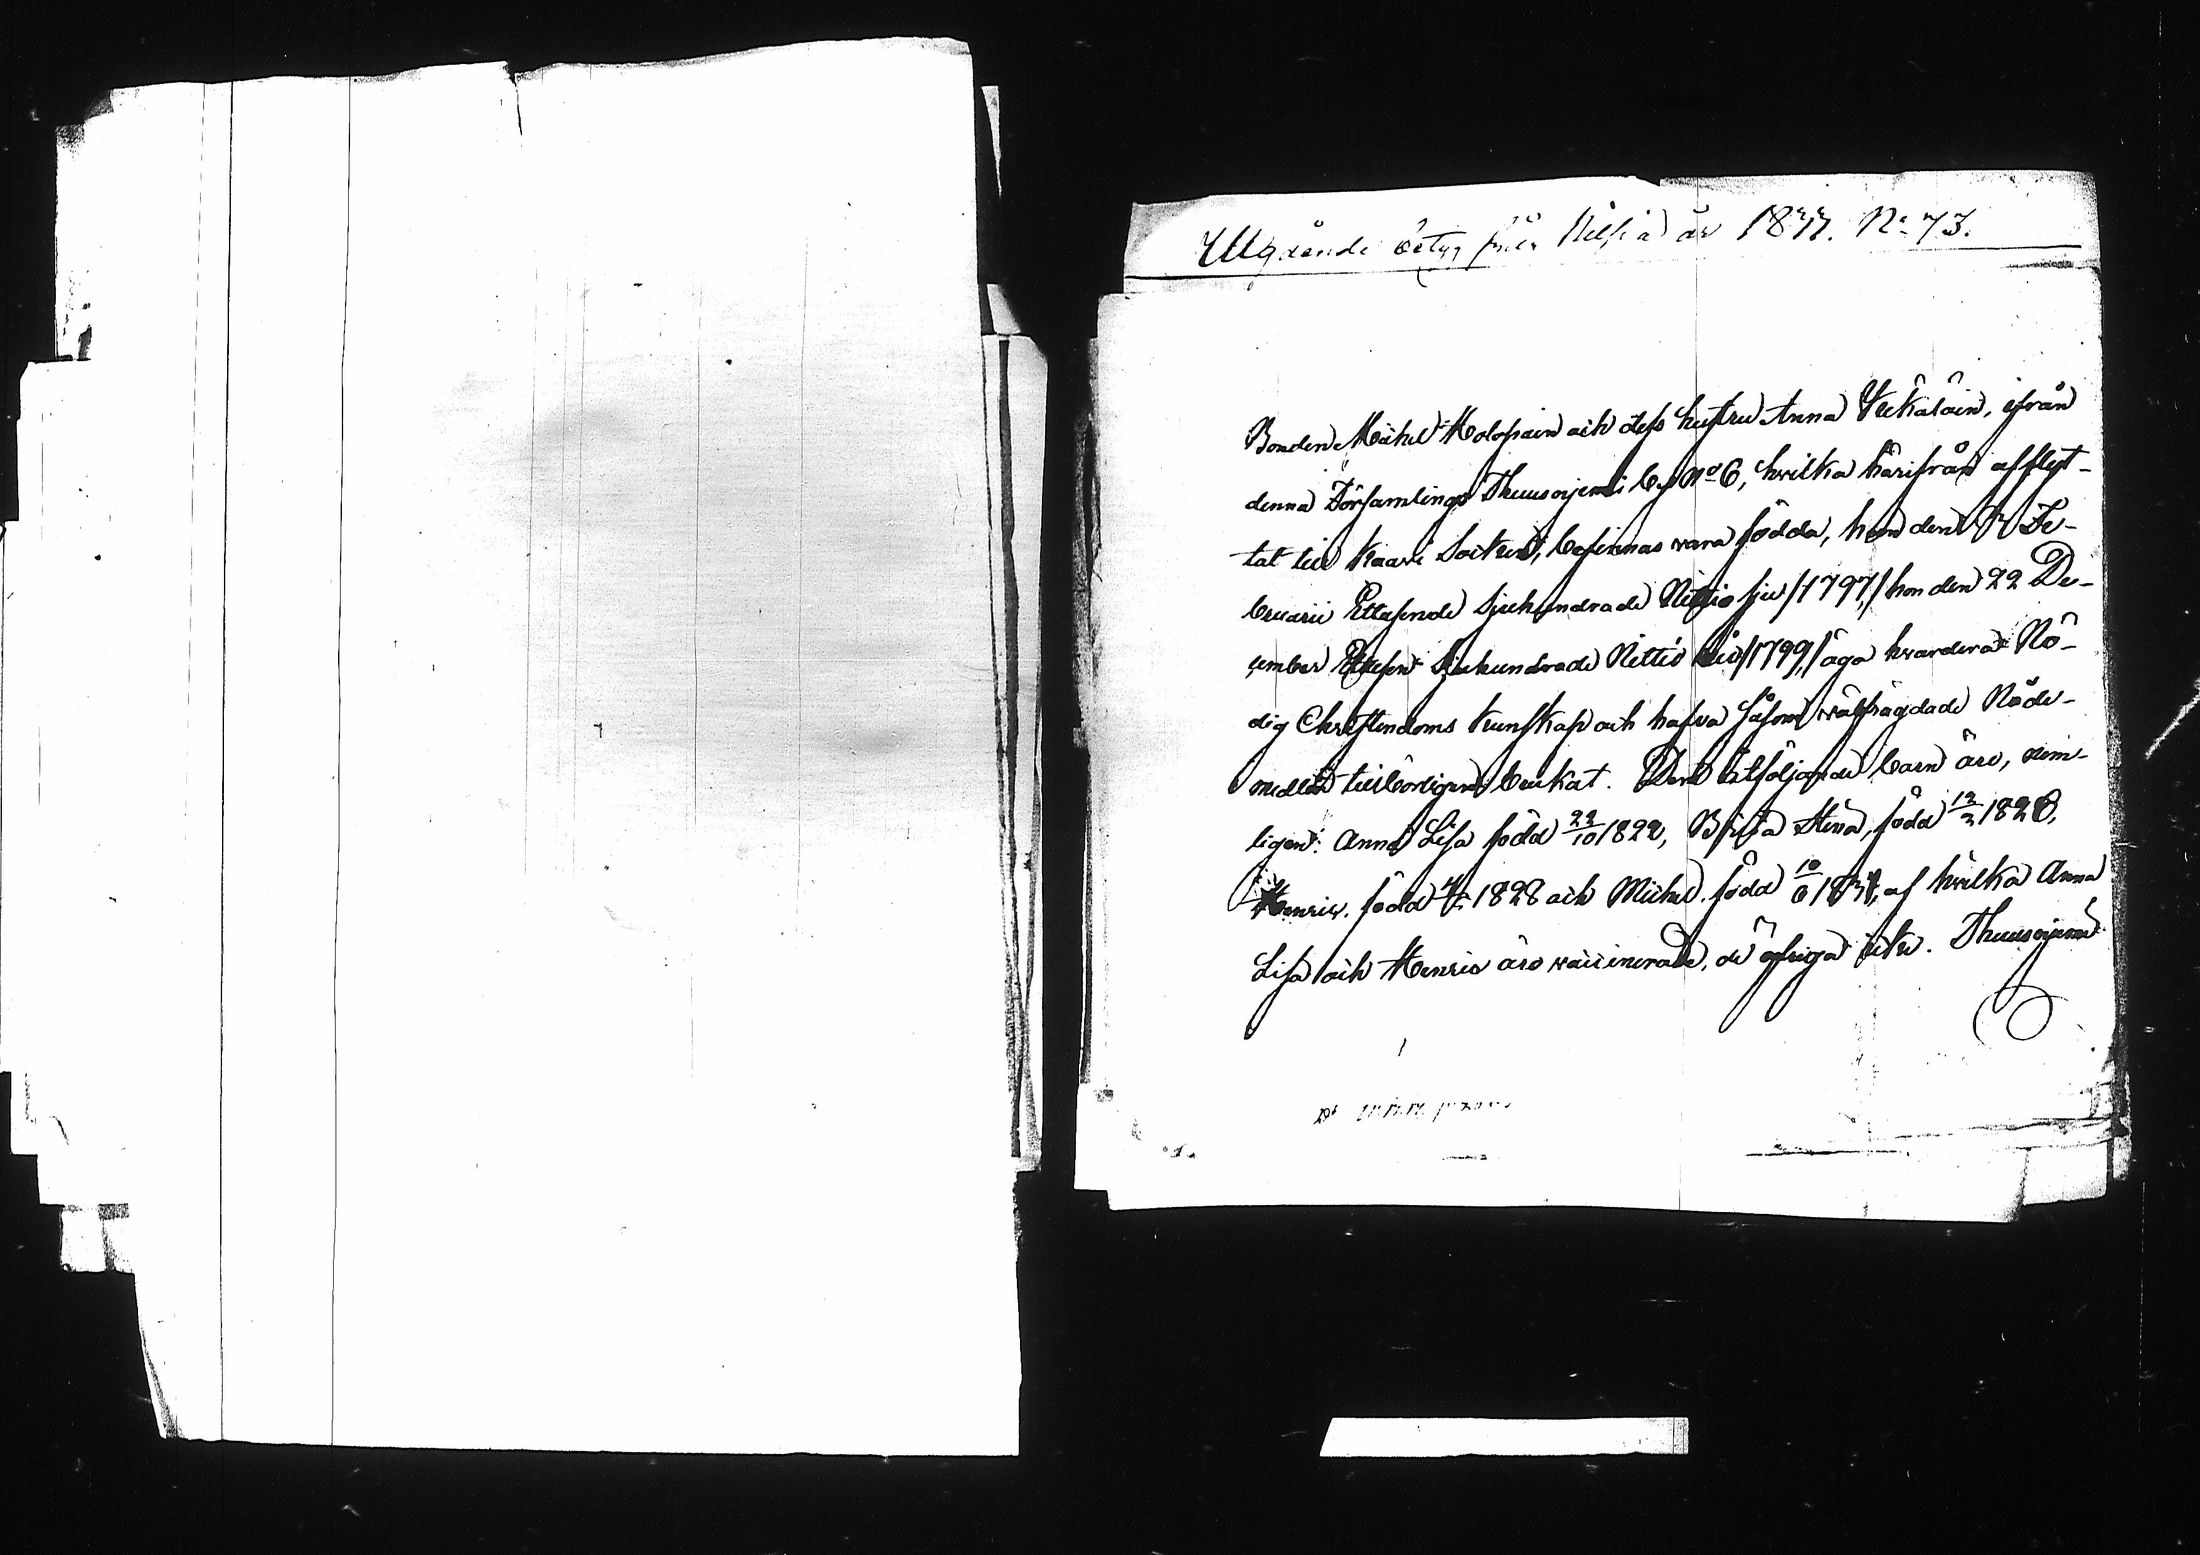 Utgående betyg från Nilsiä år 1833. No 73.
Bonden Michel Holopain och dess hustru Anna Wekäläin, ifrån
denna Församlings Thuusojerwi by No 6, hwilka härifrån afflyt-
tat till Kaavi Socken, befinnas wara födda, han den Fe-
bruarii Ettusende Sjuhundrade Nittio sju /1797,/ hon den 22 De-
cember Ettusen Sjuhundrade Nittio nio /1799,/ äga hwardera Nö-
dig Christendoms kunskap och hafva såsom wälfrägdade Nåde-
medlen tillbörligen brukat. Dem åtföljande barn äro, nem-
ligen: Anna Lisa född 22/10 1822, Brita Stina, född 1826,
Henric. född 1828 och Michel. född af hwilka Anna
Lisa och Henric äro vaccinerade, de öfriga icke. Thuusojerwi